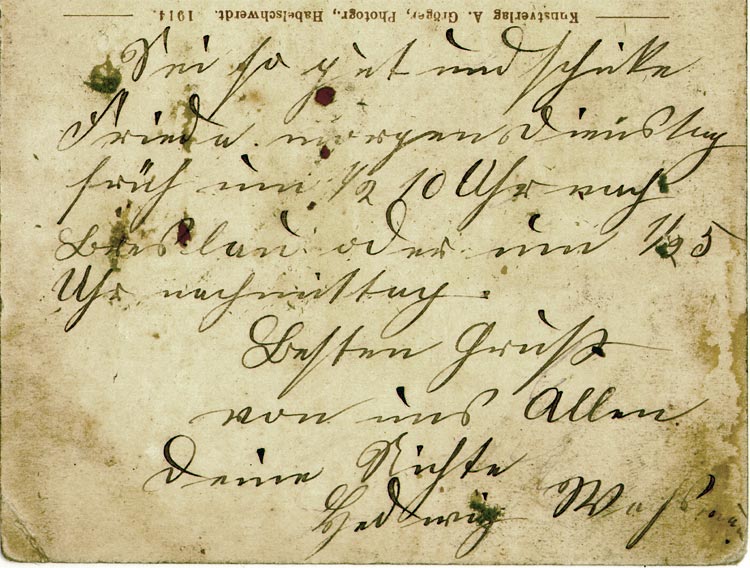 Kunstverlag A. Gröger, Photogr., Habelschwerdt. 1914.
Sei so gut und schicke
Frieda morgen Dienstag
früh um 1/2 10 Uhr nach
Breslau oder um 1/2 5
Uhr nachmittag.
Besten Gruß
von uns Allen
Deine Nichte
Hedwig